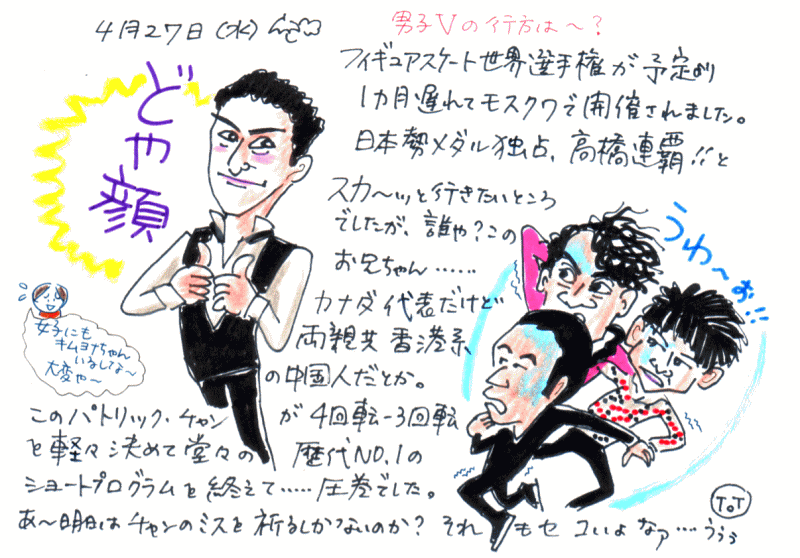 4月27日(水)
男子Vの行方は～?
フィギュアスケート世界選手権が予定より
1カ月遅れてモスクワで開催されました。
日本勢メダル独占、高橋連覇!!と
スカ～ッと行きたいところ
でしたが、誰や?この
お兄ちゃん……
カナダ代表だけど
両親共香港系
の中国人だとか。
このパトリック・チャンが4回転-3回転
を軽々決めて堂々の歴代NO.1の
ショートプログラムを終えて……圧巻でした。
あ～明日はチャンのミスを祈るしかないのか? それもセコいよなァ…ううう
どや顔
うわ～ぉ!!
女子にも
キムヨナちゃん
いるしな～
大変や～
ToT